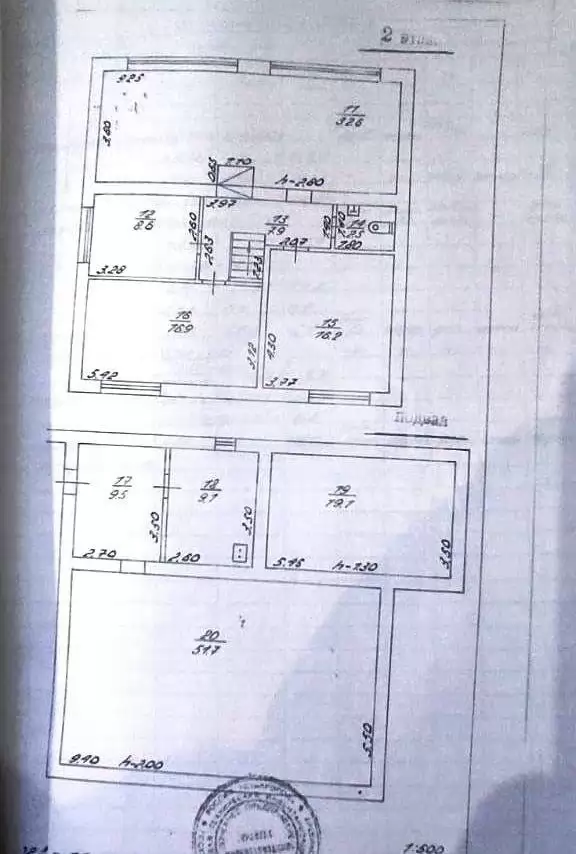 2 этаж
9.25
3.60
11
32.6
0.65
1.10
h-2.60
12
8.6
2.60
3.28
2.97
13
7.9
2.63
2.07
1.40
1.40
14
2.5
1.80
16
16.9
5.42
3.12
15
16.2
4.30
3.77
подвал
17
9.5
3.50
2.70
18
9.1
3.50
2.60
19
19.1
5.45
h-2.30
3.50
20
51.7
9.40
h-2.00
5.50
1:500